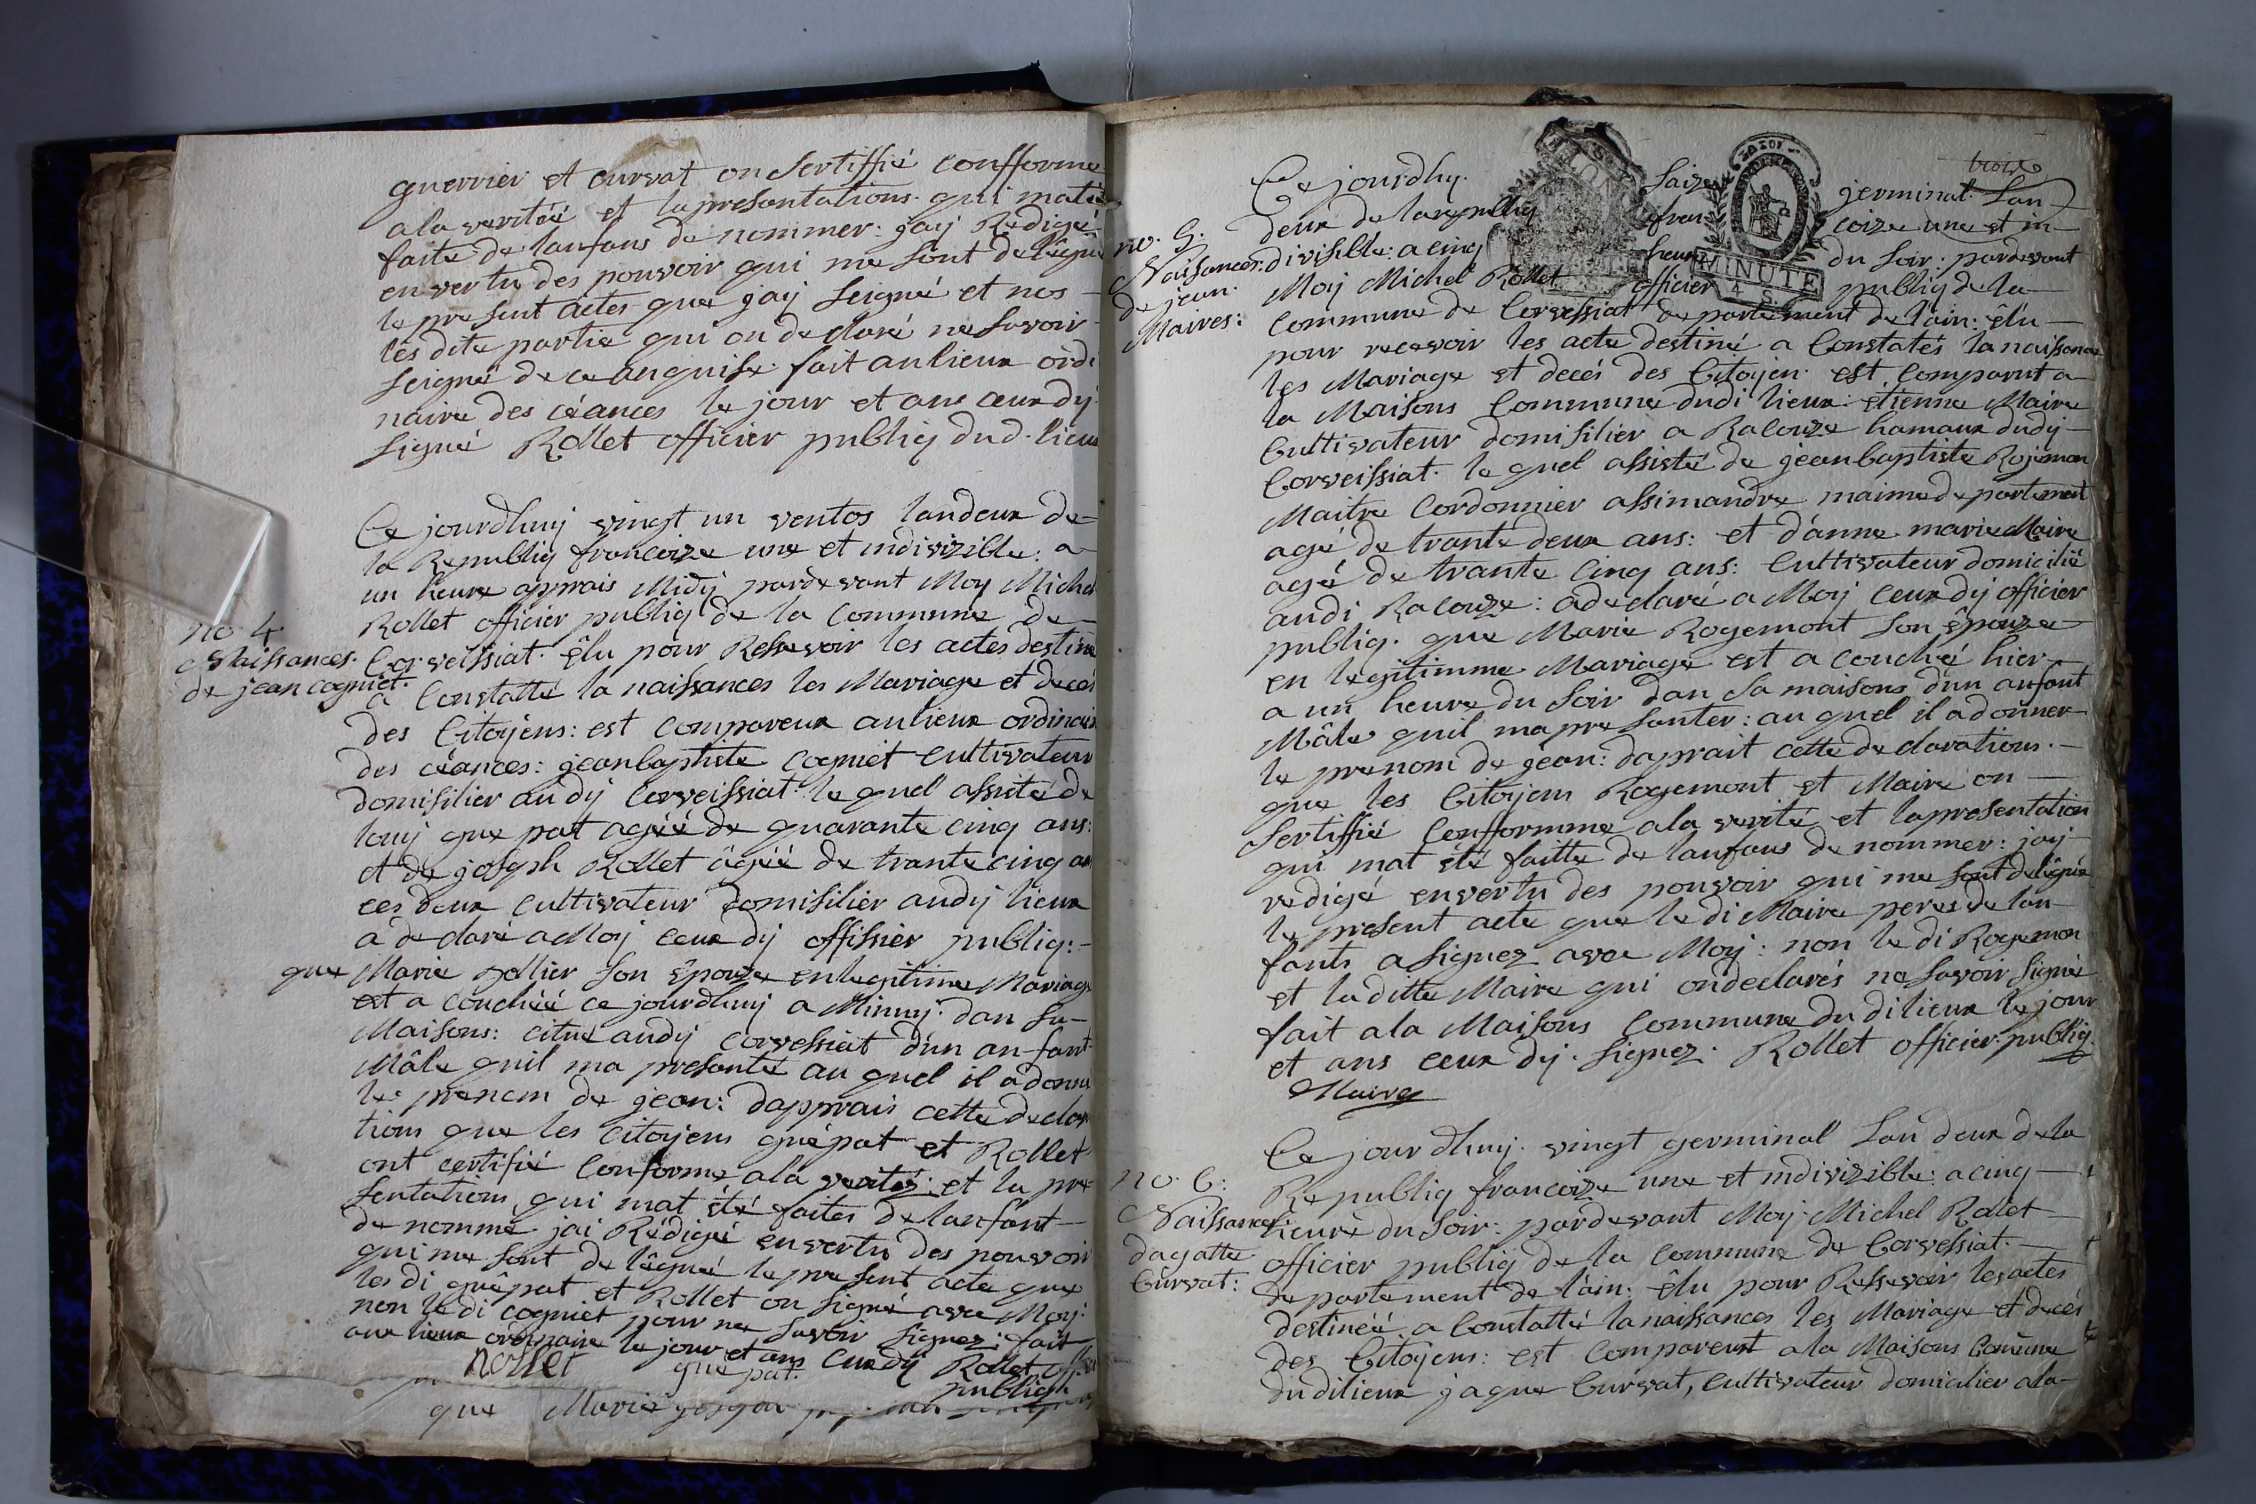 guerrier et cursat on sertiffié confforme
a la veritéé et la presantations qui mat été
faite de lanfans de nommer: jay Redigé
en vertu des pouvoir qui me sont delégué
le present actes que jay seigné et nos
les dite partie qui on declaré ne savoir
seigné de ce anquise fait au lieux ordi
naire des céances le jour et ans ceux dy
signé Rollet officier publiq dud. lieux
Ce jourdhuy vingt un ventos lan deux de
la Republiq françoize une et indivizible: a
un heure apprais Midy pardevant Moy Michel
Rollet officier publiq de la Commune de
no. 4
Naissances.
de jean cogniet.
Corveissiat. élu pour Ressevoir les actes destiné
a Constatté la naissances les Mariage et decés
des Citoyens: est compareux au lieux ordinair
des céances: jean baptiste cogniet cultivateur
domisilier au dy Corveissiat. le quel assisté de
louy gue pat agéé de quarante cinq ans:
et de joseph Rollet âgéé de trante cinq an
ces deux cultivateur domisilier au dy lieux
a declaré a Moy ceux dy offissier publiq:
que Marie sollier son épouze en legitime Mariage
est a couchéé ce jourdhuy a Minuy. dan sa
Maisons: citué au dy Corvessiat dun anfant
Mâle quil ma presanté au quel il a donné
le prenom de jean: dapprais cette decla
tions que les citoyens guépat et Rollet
ont certifié Conforme a la verités et la pre
sentations qui mat été faites de lanfant
de nommé jai Rédigé en vertu des pouvoir
qui me sont delégué le present acte que
les di guépat et Rollet on signé avec Moy:
non le di cogniet pour ne savoir signez: fait
aux lieux ordinaire le jour et ans ceux dy Rollet off.
Rollet guépat. publiq
que Marie
trois
Ce jourdhuy saize germinal Lan
deux de la republiq françoize une et in
no. 5.
Naisances
de jean.
Maires:
divisible: a cinq heure du soir: pardevant
Moy Michel Rollet officier publiq de la
Commune de Corvessiat departement de l'ain: élu
pour recevoir les acte destiné a Constatés la naissance
les Mariage et decés des Citoyen est comparut a
la Maisons Commune dudi lieux: etienne Maire
Cultivateur domisilier a Racouze hamaux dudy
Corveissiat. le quel assisté de jean baptiste Rojemon
Maitre Cordonnier assimandre maime departemant
agé de trante deux ans: et d'anne marie Maire
agé de trante cinq ans: Cultivateur domicilié
au di Racouze: a declaré a Moy ceux dy officier
publiq. que Marie Rogemont son épouze
en legitimme Mariage est a couché hier
a un heure du soir dan sa maisons d'un anfant
Mâle quil ma presanter: au quel il a donner
le prenom de jean: daprait cette declarations.
que les Citoyens Rogemont et Maire on
sertiffié Confformme a la verité et la presentation
qui mat été faitte de lanfans de nommer: jay
redigé en vertu des pouvoir qui me sont deligué
le present acte que le di Maire peres de lan
fants a signez avec Moy: non le di Rogemon
et la ditte Maire qui on declarés ne savoir signié
fait a la Maisons Commune du di lieux le jour
et ans ceux dy. signez. Rollet officier publiq.
Maire
Ce jourdhuy. vingt germinal Lan deux de la
Republiq françoize une et indivizible: a cinq
no. 6:
Naissances
dagatte
Cursat:
heure du soir: pardevant Moy Michel Rollet
officier publiq de la commune de Corvessiat.
departement de l'ain: élu pour Ressevoir les actes
destinéé a Constatté la naissances les Mariage et decés
des Citoyens: est Compareut a la Maisons Comune
du di lieux jaque Cursat, cultivateur domicilier a la